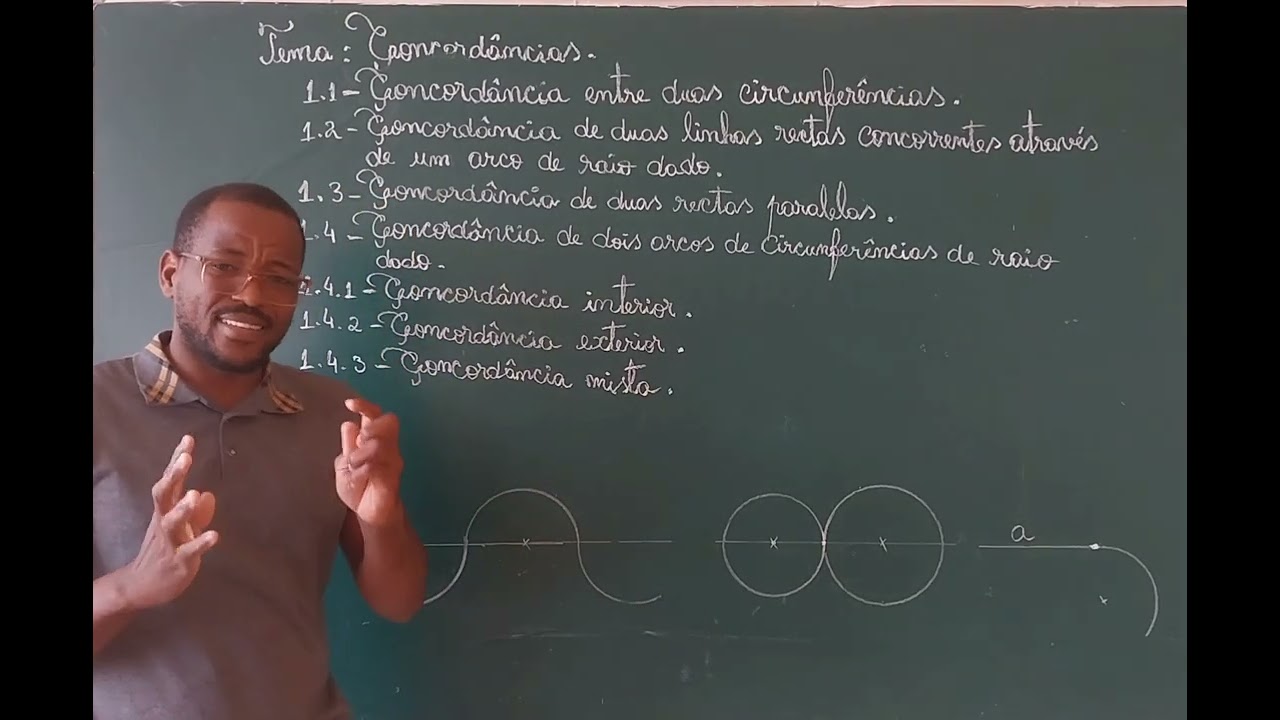 Tema: Concordâncias.
1.1 - Concordância entre duas circunferências.
1.2 - Concordância de duas linhas rectas concorrentes através
de um arco de raio dado.
1.3 - Concordância de duas rectas paralelas.
1.4 - Concordância de dois arcos de circunferências de raio
dado.
1.4.1 - Concordância interior.
1.4.2 - Concordância exterior.
1.4.3 - Concordância mista.
a